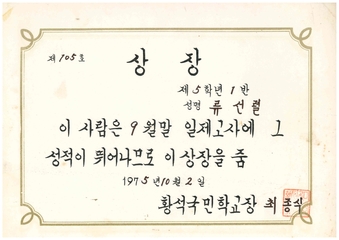 제 105호
상장
제 5학년 1 반
성명 류선렬
이 사람은 9월말 일제고사에 그
성적이 뛰어나므로 이 상장을 줌
1975년 10월 2일
황석국민학교장 최종식